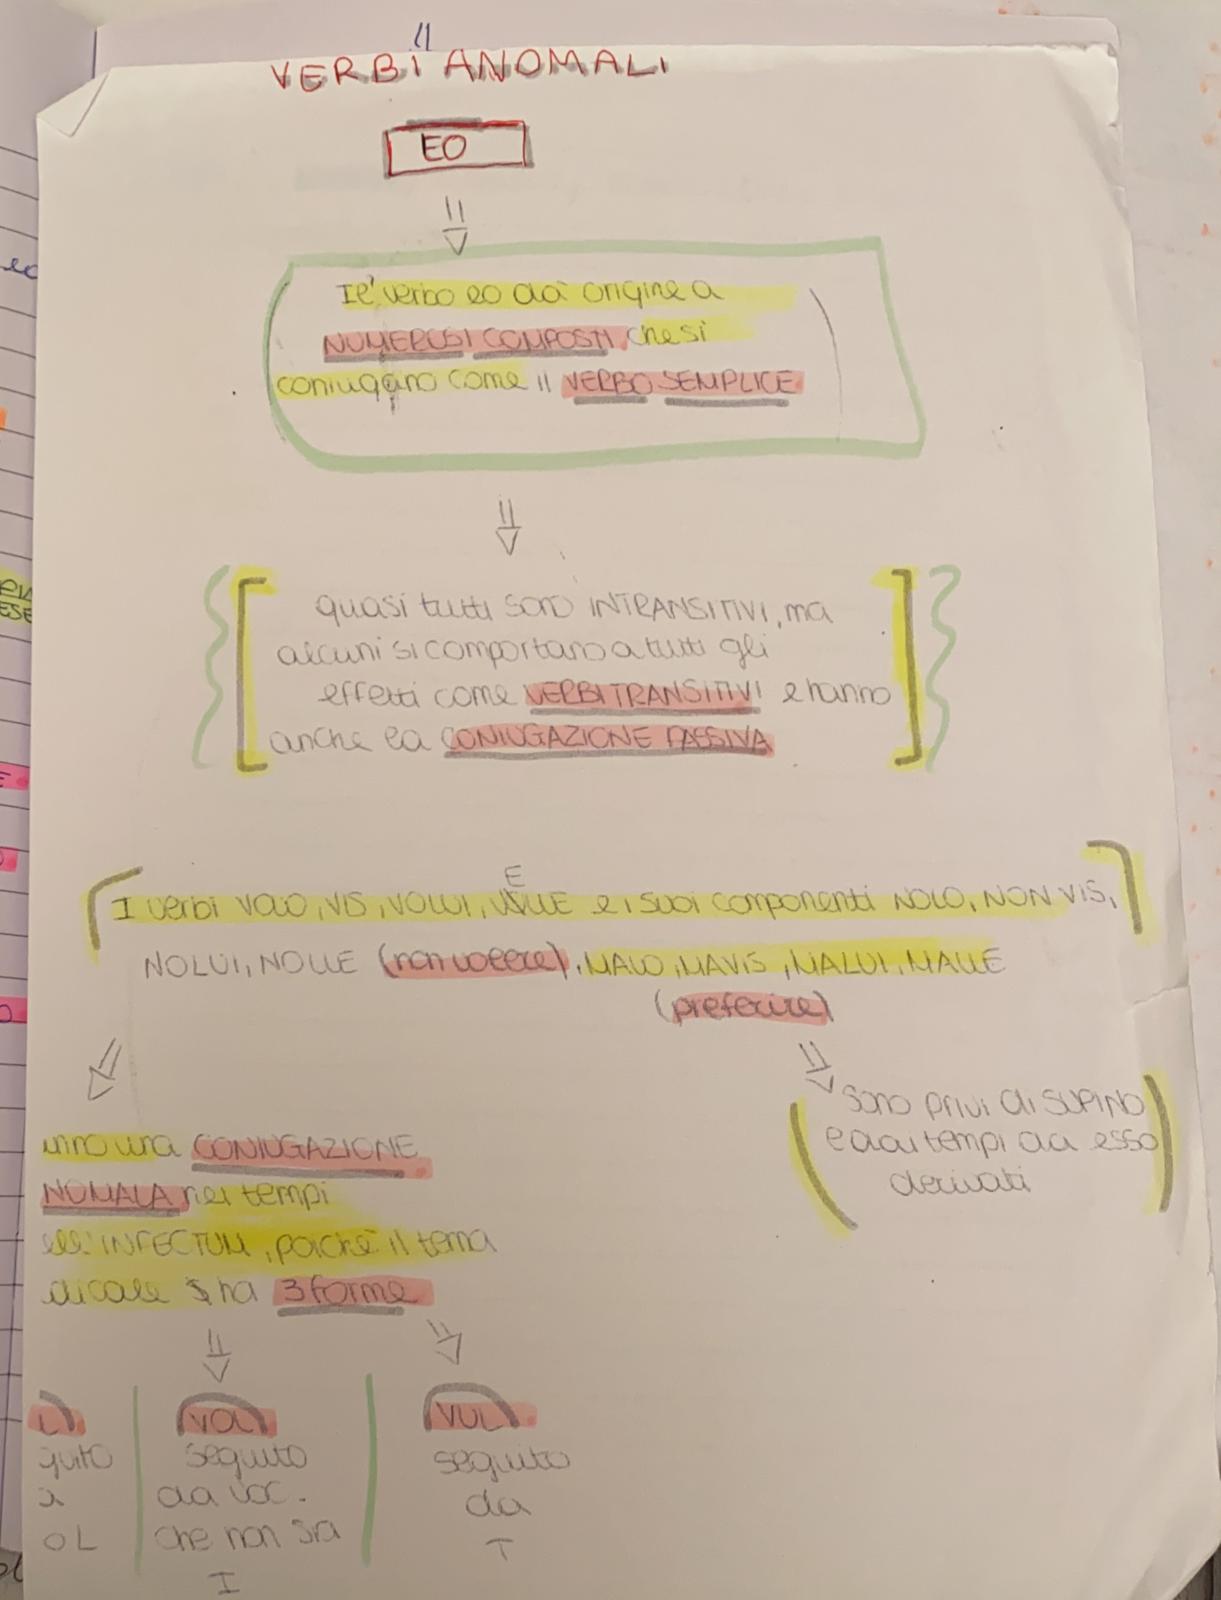 VERBI ANOMALI
EO
Il verbo eo dà origine a
NUMEROSI COMPOSTI che si
coniugano come il VERBO SEMPLICE
quasi tutti sono INTRANSITIVI, ma
alcuni si comportano a tutti gli
effetti come VERBI TRANSITIVI e hanno
anche la CONIUGAZIONE PASSIVA
I verbi VOLO, VIS, VOLUI, VELLE e i suoi componenti NOLO, NON VIS,
NOLUI, NOLLE (non volere), MALO, MAVIS, MALUI, MALLE
(preferire)
sono privi di SUPINO
e dai tempi da esso
derivati
nno una CONIUGAZIONE
NOMALA nei tempi
ell'INFECTUM, poichè il tema
dicale ha 3 forme
L
guito
a
o L
VOL
seguito
da voc.
che non sia
I
VUL
seguito
da
T